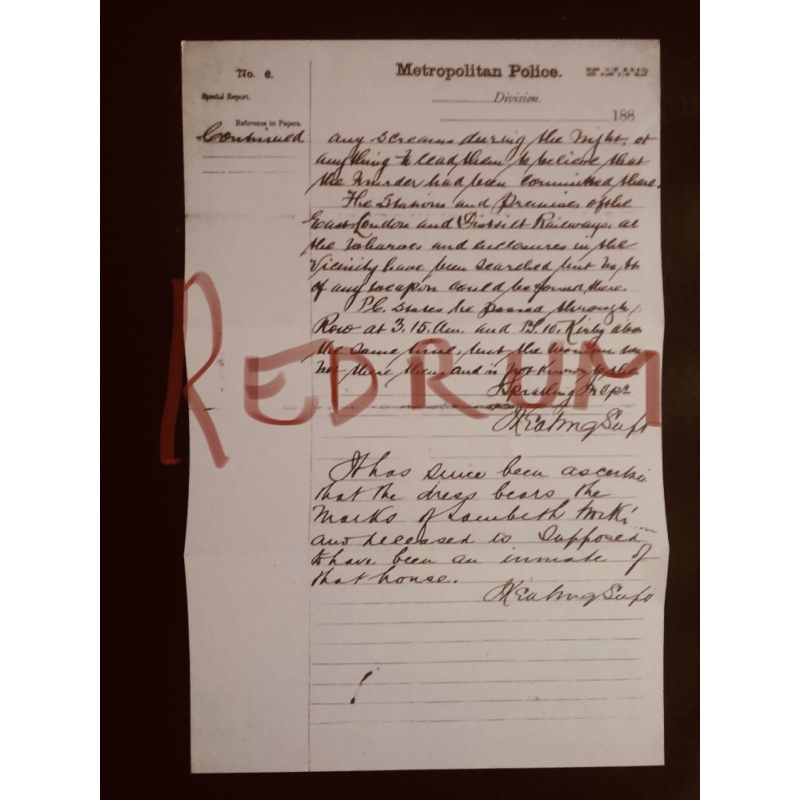 No. 6.
Special Report.
Reference to Papers.
Continued
Metropolitan Police.
Division.
188
any screams during the night, or
anything to lead them to believe that
the murder had been committed there.
The Stations and premises of the
East London and District Railways, at
the wharves and enclosures in the
vicinity have been searched but no
of any weapon could be found there.
P.C. states he passed through
Row at 3.15.am. and P.S. 10. Kirby
the same time, but the woman
not there then and is not known to
Spratling Inspr
JKeating Supt
It has since been
that the dress bears the
Marks of Lambeth
and deceased is supposed
to have been an inmate of
that house.
JKeating Supt
REDRUM